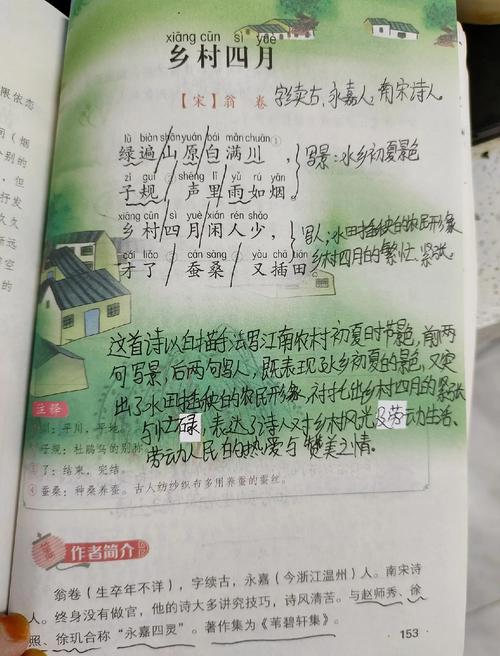 xiāng cūn sì yuè
乡村四月
【宋】翁 卷 字续古,永嘉人,南宋诗人。
lǜ biàn shān yuán bái mǎn chuān ①
绿遍山原白满川, 写景:水乡初夏景色
zǐ guī ② shēng lǐ yǔ rú yān
子规 声里雨如烟。
xiāng cūn sì yuè xián rén shǎo
乡村四月闲人少, 写人:水田插秧的农民形象
cái liǎo ③ cán sāng ④ yòu chā tián
才了 蚕桑 又插田。 乡村四月的繁忙、紧张。
这首诗以白描手法写江南农村初夏时节景色,前两
句写景,后两句写人,既表现了水乡初夏的景色,又突
出了水田插秧的农民形象,衬托出乡村四月的紧张
与忙碌,表达了诗人对乡村风光及劳动生活、
劳动人民的热爱与赞美之情。
注释
川:平川,平地。
子规:杜鹃鸟的别称。
③ 了:结束,完结。
④ 蚕桑:种桑养蚕。古人纺纱织布多用养蚕的蚕丝。
作者简介
翁卷(生卒年不详),字续古,永嘉(今浙江温州)人。南宋诗
人。终身没有做官,他的诗大多讲究技巧,诗风清苦。与赵师秀、徐
照、徐玑合称“永嘉四灵”。著作集为《苇碧轩集》。
153
限依态